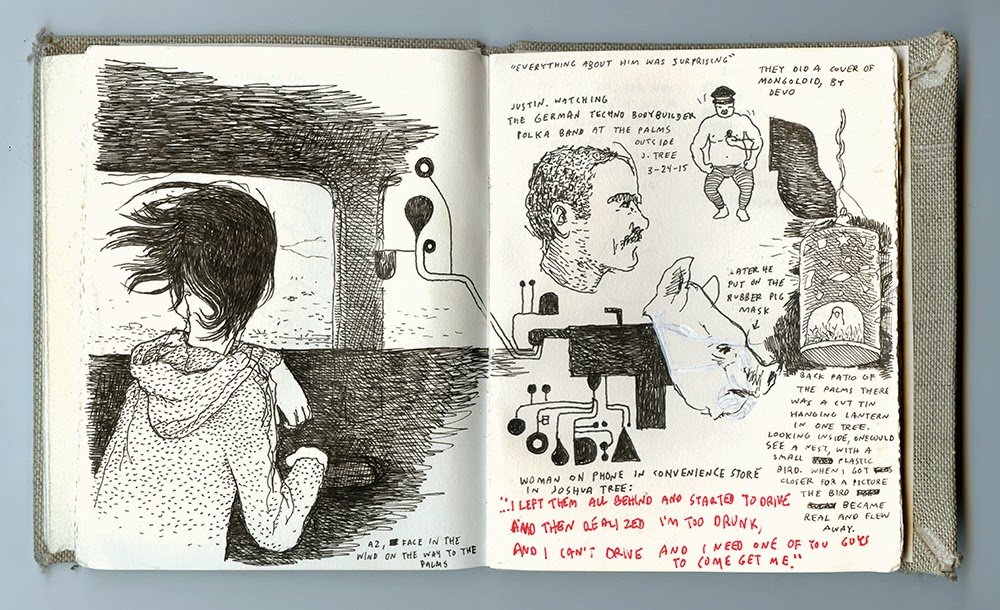 AZ, FACE IN THE
WIND ON THE WAY TO THE
PALMS
"EVERYTHING ABOUT HIM WAS SURPRISING"
JUSTIN. WATCHING
THE GERMAN TECHNO BODYBUILDER
POLKA BAND AT THE PALMS
OUTSIDE
J. TREE
3-24-15
THEY DID A COVER OF
MONGOLOID, BY
DEVO
LATER HE
PUT ON THE
RUBBER PIG
MASK
BACK PATIO OF
THE PALMS THERE
WAS A CUT TIN
HANGING LANTERN
IN ONE TREE.
LOOKING INSIDE, ONE WOULD
SEE A NEST, WITH A
SMALL PLASTIC
BIRD. WHEN I GOT
CLOSER FOR A PICTURE
THE BIRD
BECAME
REAL AND FLEW
AWAY.
WOMAN ON PHONE IN CONVENIENCE STORE
IN JOSHUA TREE:
"...I LEFT THEM ALL BEHIND AND STARTED TO DRIVE
AND THEN REALIZED I'M TOO DRUNK,
AND I CAN'T DRIVE AND I NEED ONE OF YOU GUYS
TO COME GET ME."